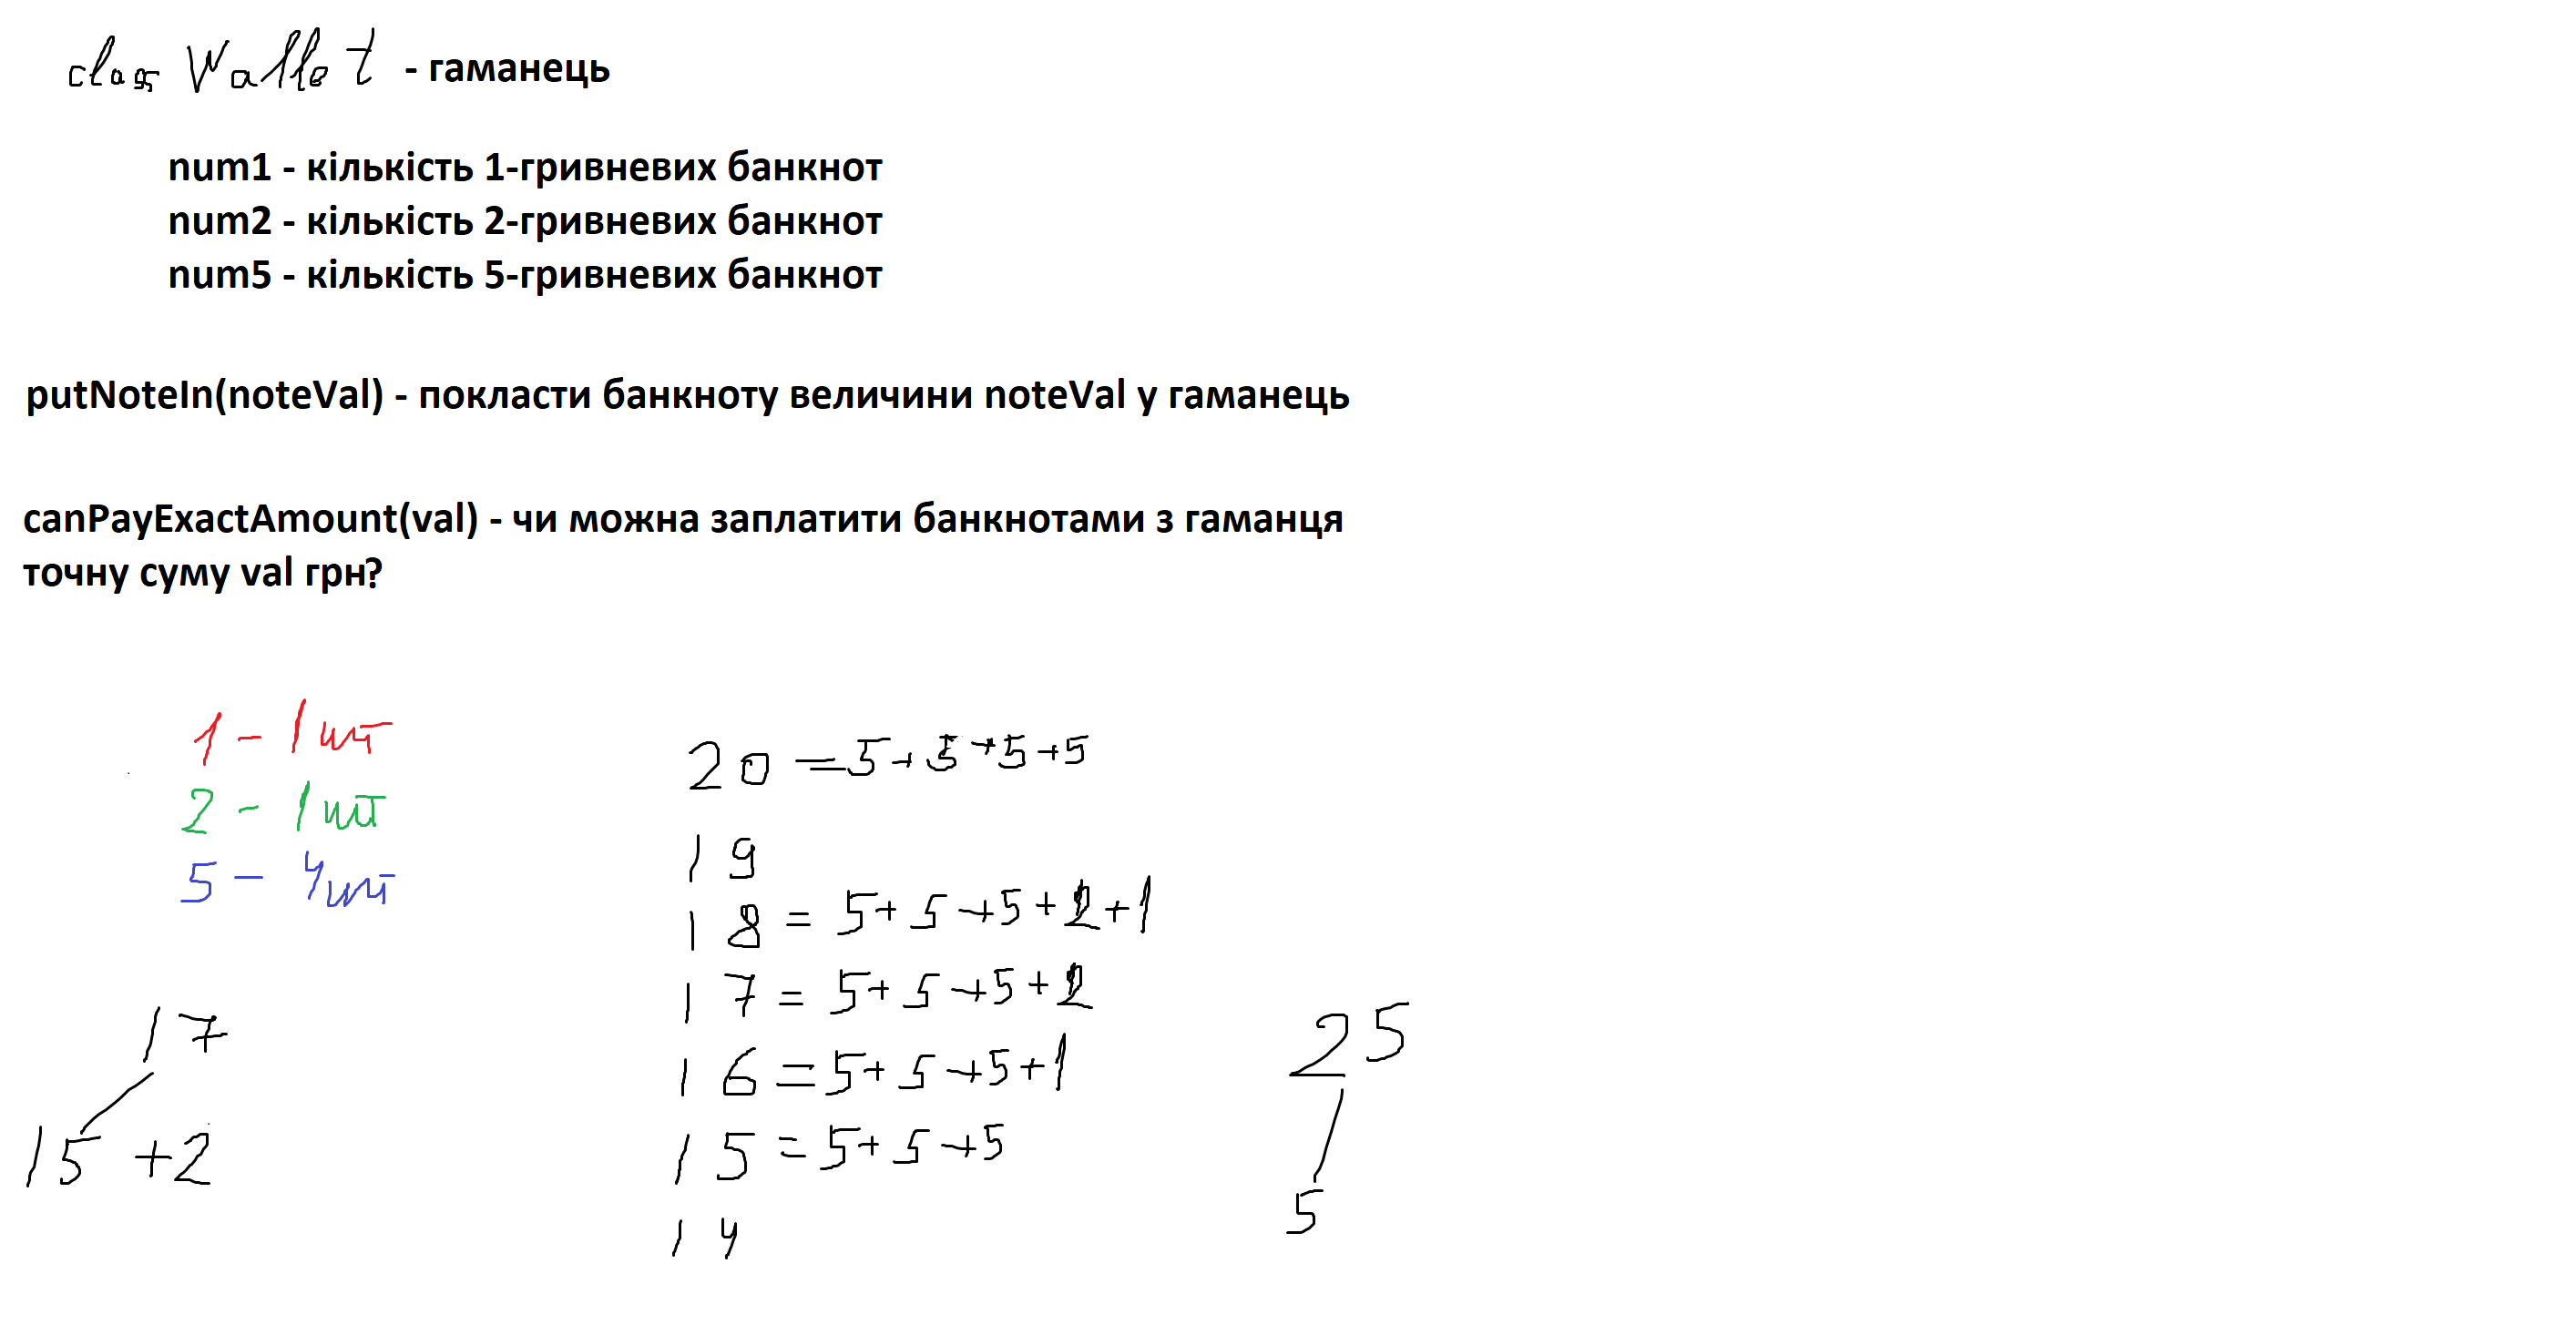 class Wallet - гаманець
num1 - кількість 1-гривневих банкнот
num2 - кількість 2-гривневих банкнот
num5 - кількість 5-гривневих банкнот
putNoteIn(noteVal) - покласти банкноту величини noteVal у гаманець
canPayExactAmount(val) - чи можна заплатити банкнотами з гаманця
точну суму val грн?
1 - 1 шт
2 - 1 шт
5 - 4 шт
17
15 + 2
20 = 5 + 5 + 5 + 5
19
18 = 5 + 5 + 5 + 2 + 1
17 = 5 + 5 + 5 + 2
16 = 5 + 5 + 5 + 1
15 = 5 + 5 + 5
14
25
5